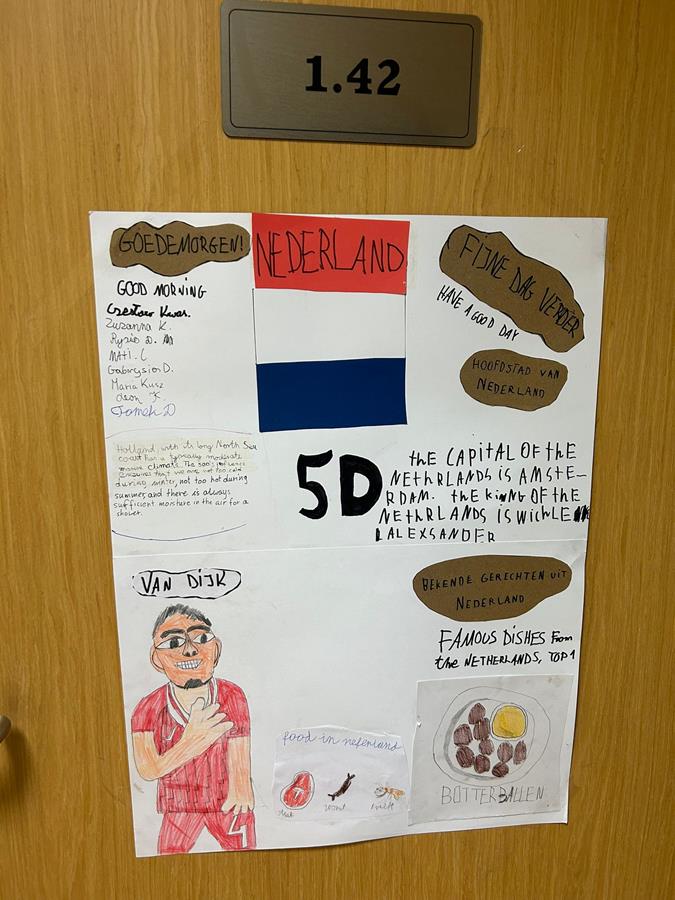 1.42
GOEDEMORGEN!
GOOD MORNING
Zuzanna K.
Ryśio D.
Mati. C
Gabrysion D.
Maria Kusz
Leon K
Tomek D
NEDERLAND
FIJNE DAG VERDER
HAVE A GOOD DAY
HOOFDSTAD VAN
NEDERLAND
Holland, with its long North Sea
coast has a typically moderate
marine climate. The sea's influence
ensures that we are not too cold
during winter, not too hot during
summer, and there is always
sufficient moisture in the air for a
shower.
5D
the CAPITAL OF the
NETHRLANDS IS AMSTE-
RDAM. the KING OF THE
NETHRLANDS IS WICHLE
LALEXSANDER
VAN DIJK
BEKENDE GERECHTEN UIT
NEDERLAND
FAMOUS DISHES from
the NETHERLANDS, TOP 1
food in neferland
BOTTERBALLEN